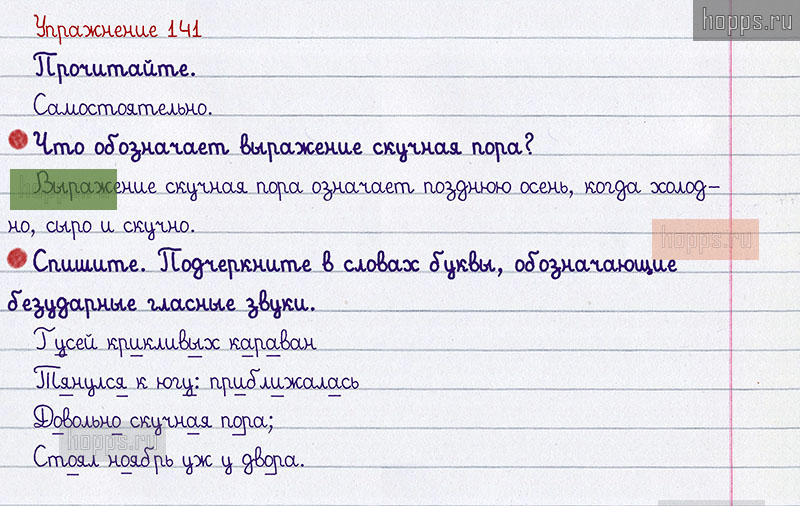 hopps.ru
Упражнение 141
Прочитайте.
Самостоятельно.
Что обозначает выражение скучная пора?
Выражение скучная пора означает позднюю осень, когда холод-
но, сыро и скучно.
hopps.ru
Спишите. Подчеркните в словах буквы, обозначающие
безударные гласные звуки.
Гусей крикливых караван
Тянулся к югу: приближалась
Довольно скучная пора;
hopps.ru
Стоял ноябрь уж у двора.